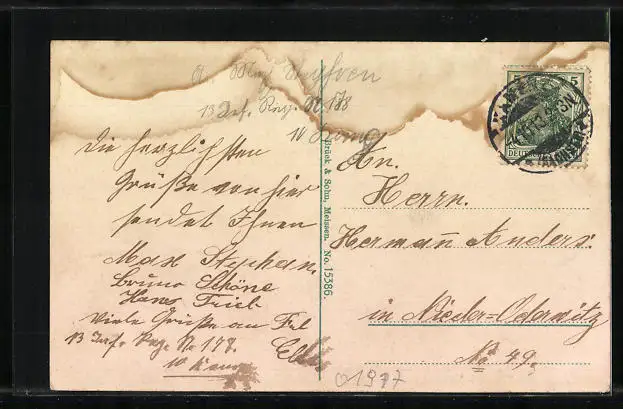 13 Inf. Reg. No 178
10
Die herzlichsten
Grüße von hier
sendet Ihnen
Max Stephan.
Bruno Schöne
Hans Trieb
viele Grüße an Frl
13 Inf. Reg. No 178.
10 Komp
Brück & Sohn, Meissen. No. 15386.
5
DEUTSCHES
An.
Herrn.
Hermann Anders.
in Nieder-Oderwitz
No 49.
01977